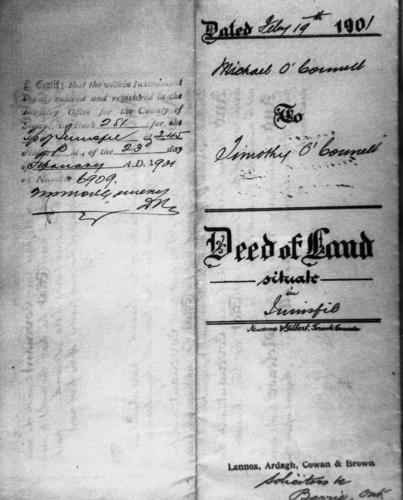 I Certify that the within Instrument
is duly entered and registered in the
Registry Office for the County of
Simcoe, in Book 251 for the
Tp of Innisfil at 2.45
o'clock P M., of the 23rd day
of February A.D. 1901
as Number 6909.
Dated Feby 19th 1901
Michael O'Connell
To
Timothy O'Connell
Deed of Land
situate
in
Innisfil
Newsome & Gilbert, Toronto, Canada
Lennox, Ardagh, Cowan & Brown
Solicitors &c
Barrie, Ont.